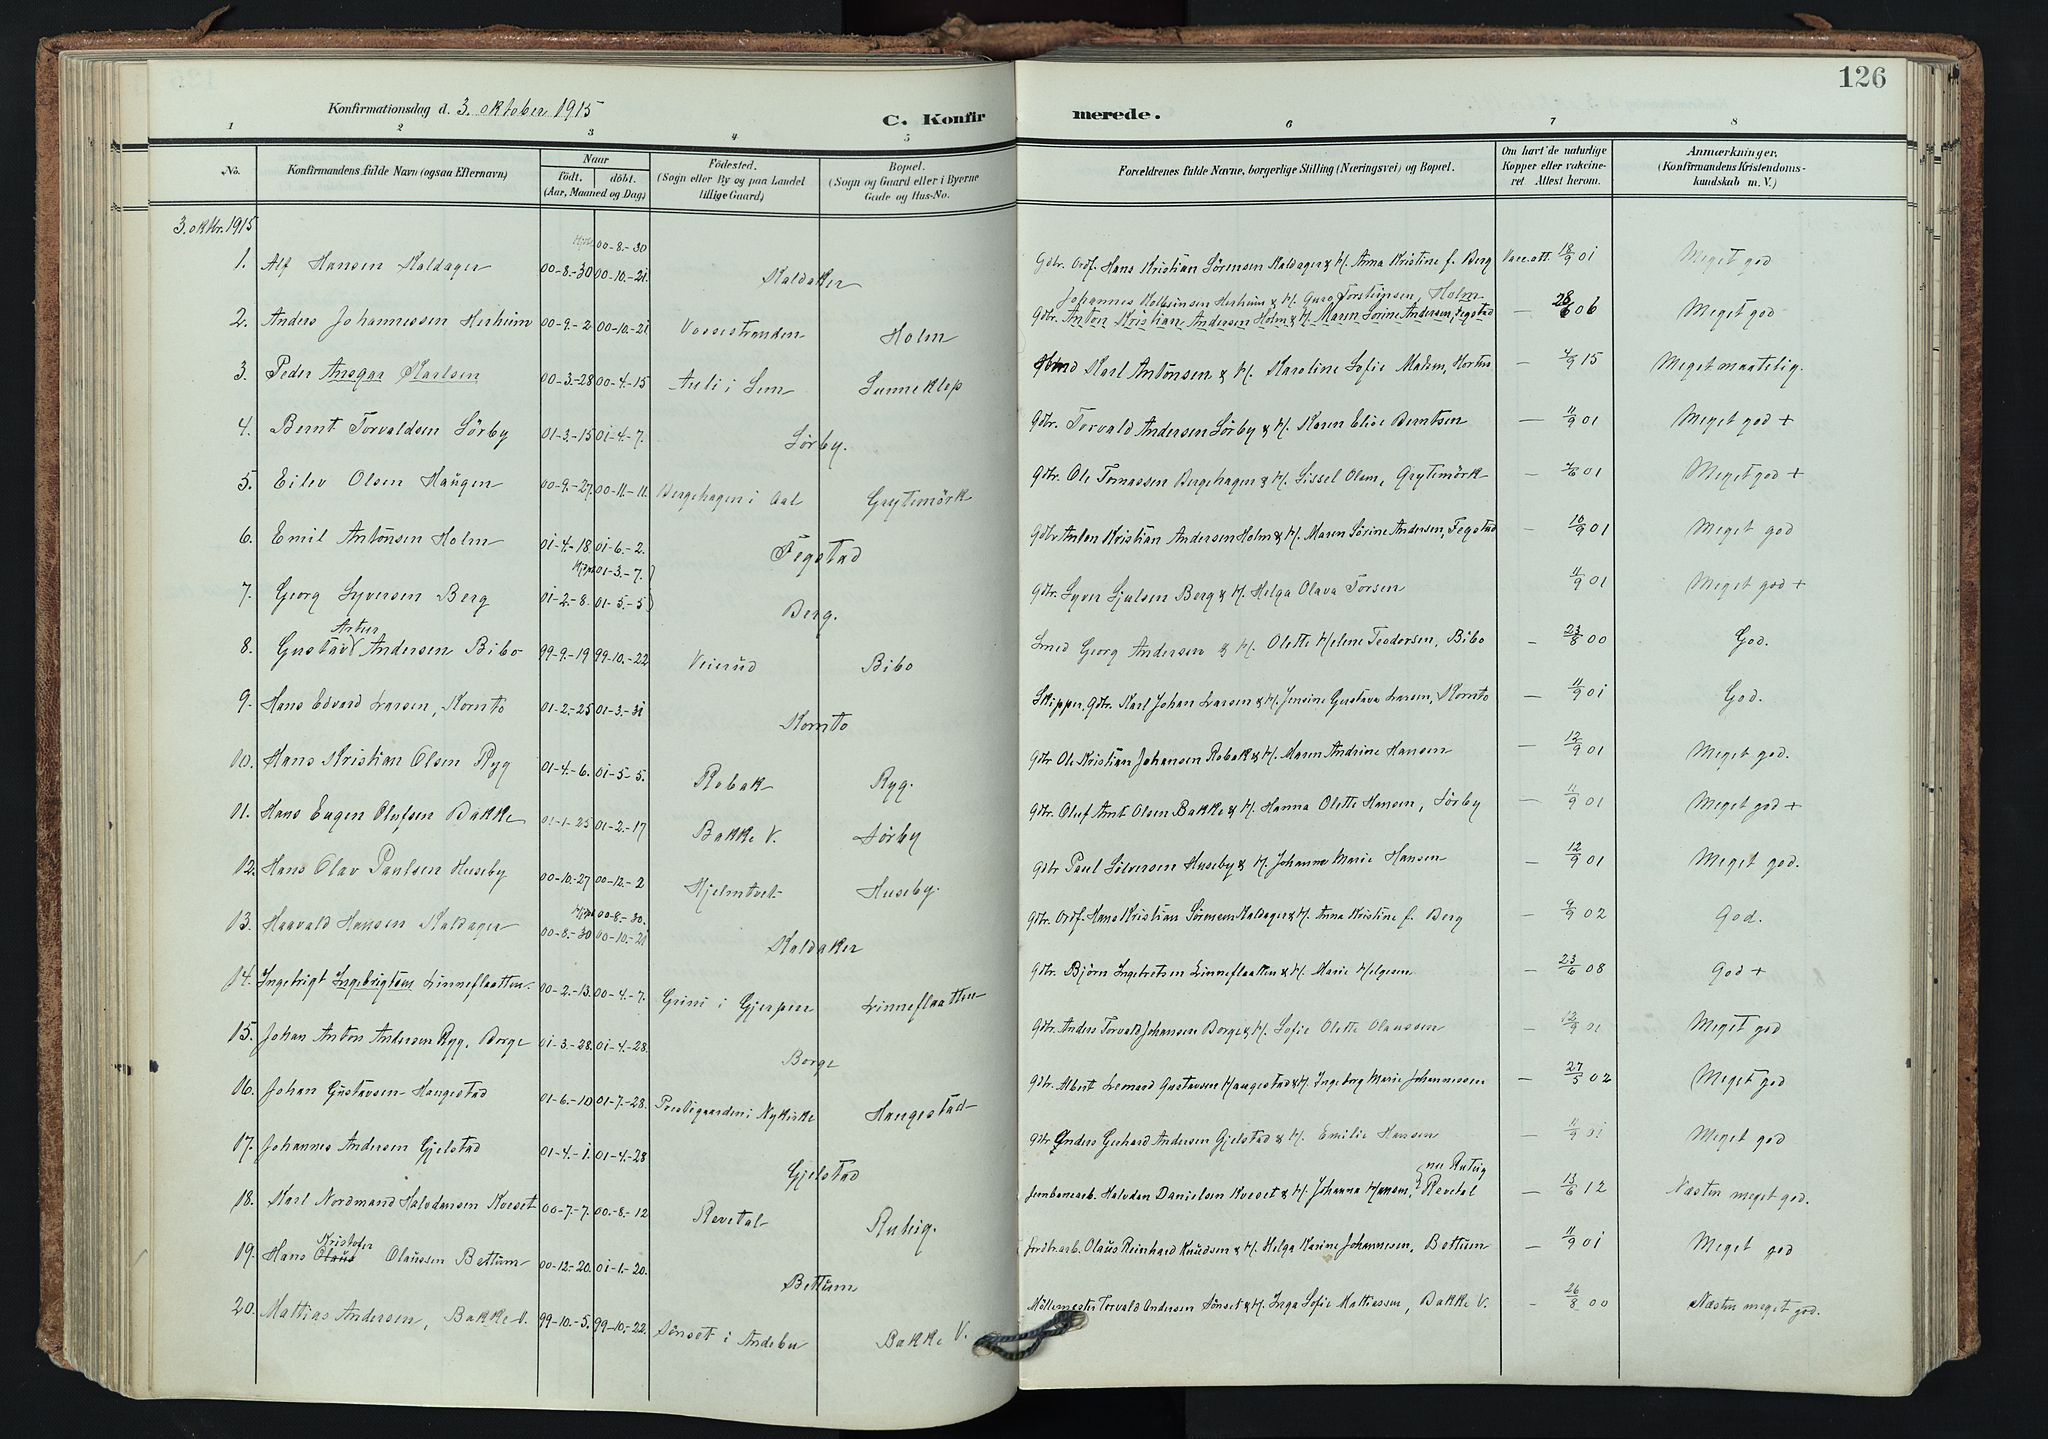 126
Konfirmationsdag d. 3. oktober 1915
C. Konfirmerede.
1 2 3 4 5 6 7 8
No. Konfirmandens fulde Navn (ogsaa Efternavn) Naar født. døbt. (Aar, Maaned og Dag) Fødested. (Sogn eller By og paa Landet tillige Gaard) Bopæl. (Sogn og Gaard eller i Byerne Gade og Hus-No. Forældrenes fulde Navne, borgerlige Stilling (Næringsvei) og Bopæl. Om havt de naturlige Kopper eller vakcineret Attest herom. Anmærkninger. (Konfirmandens Kristendomskundskab m. V.)
3. oktbr. 1915
Hjpd 00-8.-30
1. Alf Hansen Kaldager 00-8.-30 00-10.-21 Kaldaker Gdbr. Ordf. Hans Kristian Sörensen Kaldager & H. Anna Kristine f. Berg Vacc. att. 18/9 01 Meget god
Johannes Kolbeinsen Herheim & H. Guro Torsteinsen, Holm
2. Anders Johannessen Herheim 00-9.-2 00-10.-21 Vossestranden Holm Gdbr. Anton Kristian Andersen Holm & H. Maren Sörine Andersen, Fegstad — 28/6 06 Meget god
3. Peder Ansgar Karlsen 00-3.-28 00-4.-15 Auli i Sem Sunneklep Karl Antonsen & H. Karoline Sofie Madsen, Horten — 4/9 15 Meget maatelig.
4. Bernt Torvaldsen Sörby 01-3.-15 01-4.-7. Sörby. Gdbr. Torvald Andersen Sörby & H. Karen Elise Berntsen — 11/9 01 Meget god +
5. Eilev Olsen Haugen 00-9.-27. 00-11.-11. Bergehagen i Aal Grytemörk Gdbr. Ole Tomassen Bergehagen & H. Sissel Olsen, Grytemörk — 7/6 01 Meget god +
6. Emil Antonsen Holm 01-4.-18. 01-6.-2. Fegstad Gdbr. Anton Kristian Andersen Holm & H. Maren Sörine Andersen, Fegstad — 10/9 01 Meget god
Hjpd 01-3.-7.
7. Georg Syversen Berg 01-2.-8. 01-5.-5 Berg. Gdbr. Syver Sjulsen Berg & H. Helga Olava Torsen 11/9 01 Meget god +
Artur
8. Gustav Andersen Bibo 99-9.-19 99-10.-22 Veierud Bibo Smed Georg Andersen & H. Olette Helene Teodorsen, Bibo — 23/8 00 God.
9. Hans Edvard Larsen, Komto 01-2.-25 01-3.-31 Komto Skipper. Gdbr. Karl Johan Larsen & H. Jensine Gustava Larsen, Komto — 11/9 01 God.
10. Hans Kristian Olsen Ryg 01-4.-6. 01-5-5. Robak Ryg. Gdbr. Ole Kristian Johansen Robak & H. Maren Andrine Hansen — 12/9 01 Meget god.
01. Hans Eugen Olufsen Bakke 01-1-25 01-2.-17 Bakke V. Sörby Gdbr. Oluf Amt Olsen Bakke & H. Hanna Olette Hansen, Sörby — 11/9 01 Meget god +
12. Hans Olav Paulsen Huseby 00-10.-27 00-12.-2 Hjelmtvet Huseby. Gdbr. Paul Sölversen Huseby & H. Johanne Marie Hansen — 12/9 01 Meget god.
Hjpd 00-8.-30.
13. Haavald Hansen Kaldager 00-8.-30 00-10.-21 Kaldaker Gdbr. Ordf. Hans Kristian Sörensen Kaldager & H. Anna Kristine f. Berg — 9/9 02 God.
14. Ingebrigt Ingebrigtsen Linneflaatten 00-2.-13. 00-4.-7. Grini i Gjerpen Linneflaatten Gdbr. Björn Ingebretsen Linneflaatten & H. Marie Helgesen — 23/6 08 God +
15. Johan Anton Andersen Ryg, Borge 01-3.-28. 01-4.-28. Borge Gdbr. Anders Torvald Johansen Borge & H. Sofie Olette Olaussen — 12/9 01 Meget god
06. Johan Gustavsen Haugestad 01-6.-10 01-7.-28. Prestegaarden i Nykirke Haugestad Gdbr. Albert Lenard Gustavsen Haugestad & H. Ingeborg Marie Johannessen — 27/5 02 Meget god
17. Johannes Andersen Gjelstad 01-4.-1. 01-4.-28 Gjelstad Gdbr. Anders Gerhard Andersen Gjelstad & H. Emilie Hansen — 11/9 01 Meget god
nu Ruteig
18. Karl Nordmand Halvdansen Kveset 00-7.-7. 00.-8.-12 Revetal Ruteig. Jernbanearb. Halvdan Danielsen Kveset & H. Johanna Hansen, Revetal — 13/6 12 Næsten meget god.
Kristofer
19. Hans Olaus Olaussen Bettum 00-12.-20. 01-1.-20. Bettum Jordbr.arb. Olaus Reinhard Knudsen & H. Helga Karine Johannesen, Bettum — 11/9 01 Meget god
20. Mattias Andersen, Bakke V. 99-10.-5. 99-10.-22. Sönset i Andebu Bakke V. Möllemester Torvald Andersen Sönset & H. Inga Sofie Mathiassen, Bakke V. — 26/8 00 Næsten meget god.